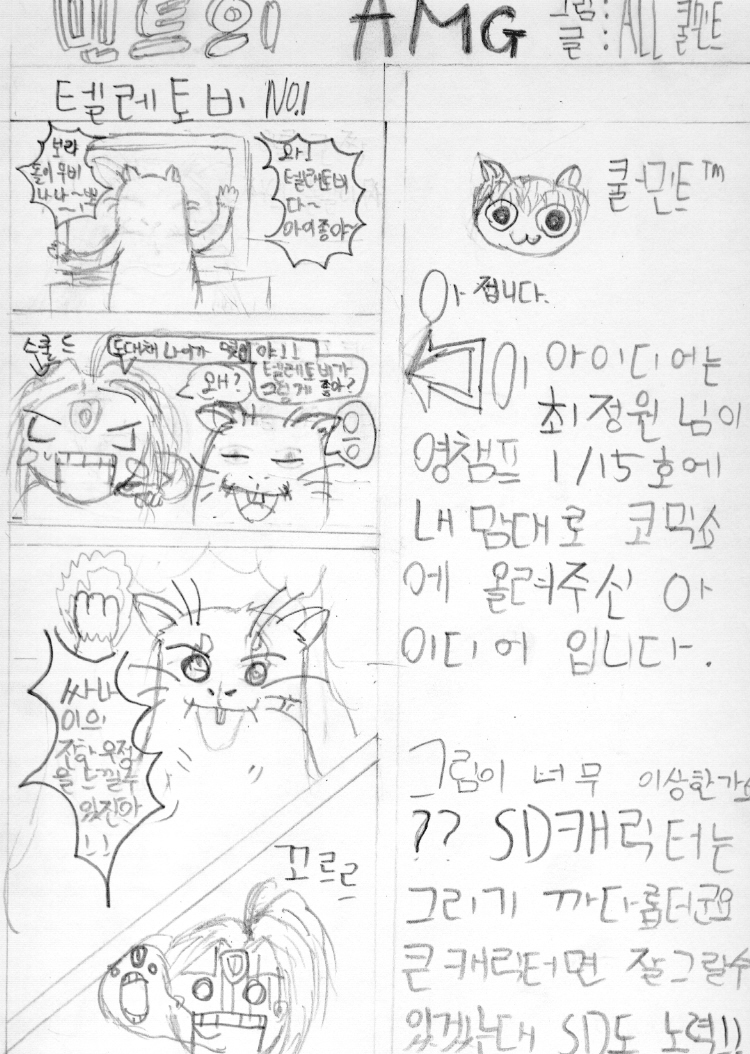 민트의 AMG
그림 :
글 : ALL 쿨민트
텔레토비 NO.1
보라
돌이 무비
나나~뽀
와!
텔레토비
다~
아이좋아~
스쿨드
도대체 나이가 몇인 야!!
텔레토비가
그렇게 좋아?
왜?
응
싸나
이의
진한 우정
을 느낄수
있잔아
!!
꼬르르
쿨-민트™
아 접니다.
이 아이디어는
최정원님이
영챔프 1/15호에
내맘대로 코믹쇼
에 올려주신 아
이디어 입니다.
그림이 너무 이상한가요
?? SD캐릭터는
그리기 까다롭더군요
큰캐릭터면 잘그릴수
있겠는대 SD도 노력!!